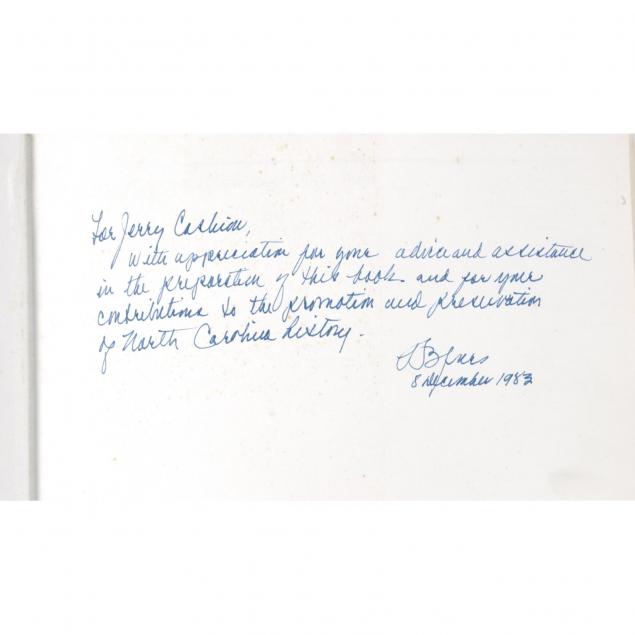 For Jerry Cashion,
With appreciation for your advice and assistance
in the preparation of this book and for your
contributions to the promotion and preservation
of North Carolina history.
8 December 1983